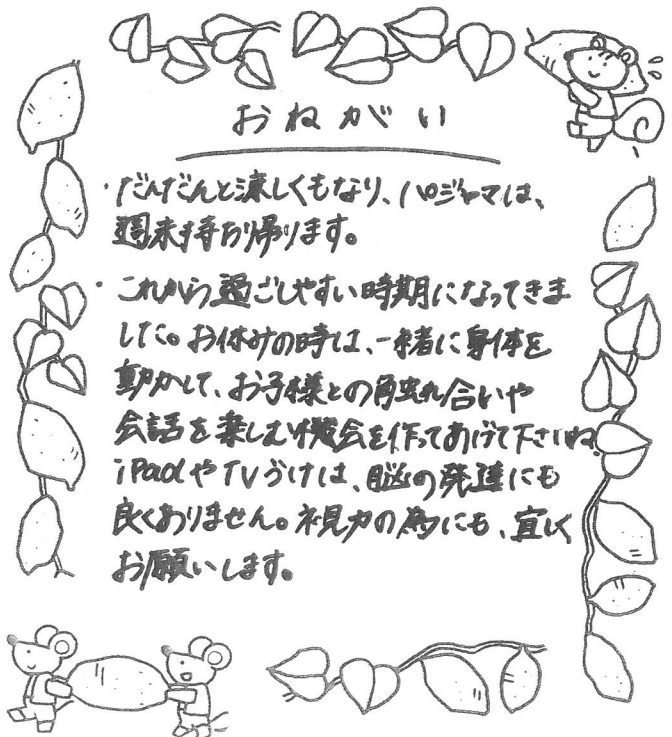 おねがい
・だんだんと涼しくもなり、パジャマは、
週末持ち帰ります。
・これから過ごしやすい時期になってきま
した。お休みの時は、一緒に身体を
動かして、お子様との触れ合いや
会話を楽しむ機会を作ってあげて下さいね。
iPadやTVづけは、脳の発達にも
良くありません。視力の為にも、宜しく
お願いします。